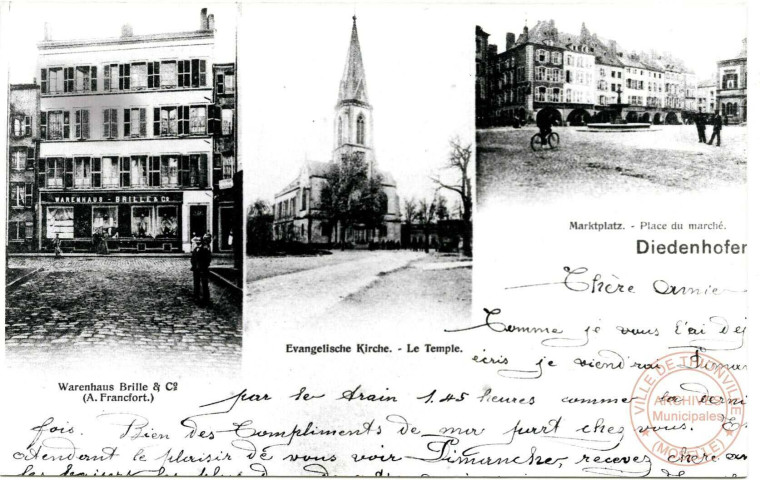 WARENHAUS - BRILLE & Cº
Marktplatz. - Place du marché.
Diedenhofen
Evangelische Kirche. - Le Temple.
Warenhaus Brille & Cº
(A. Francfort.)
Chère Amie
Comme je vous l'ai déj
écris je viendrai
par le train 1.45 heures comme la derni
fois. Bien des Compliments de ma part chez vous. E
attendant le plaisir de vous voir Dimanche, recevez chère
VILLE DE THIONVILLE
ARCHIVES
Municipales
(MOSELLE)